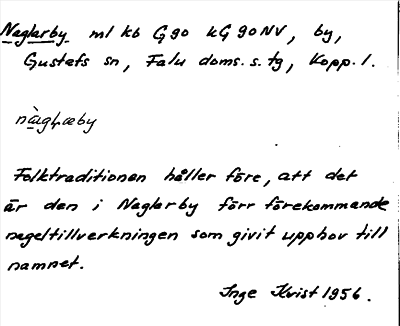 Naglarby ml kb G90 kG90NV, by,
Gustafs sn, Falu doms. s. tg, Kopp. l.
nàgłæby
Folktraditionen håller före, att det
är den i Naglarby förr förekommande
nageltillverkningen som givit upphov till
namnet.
Inge Kvist 1956.